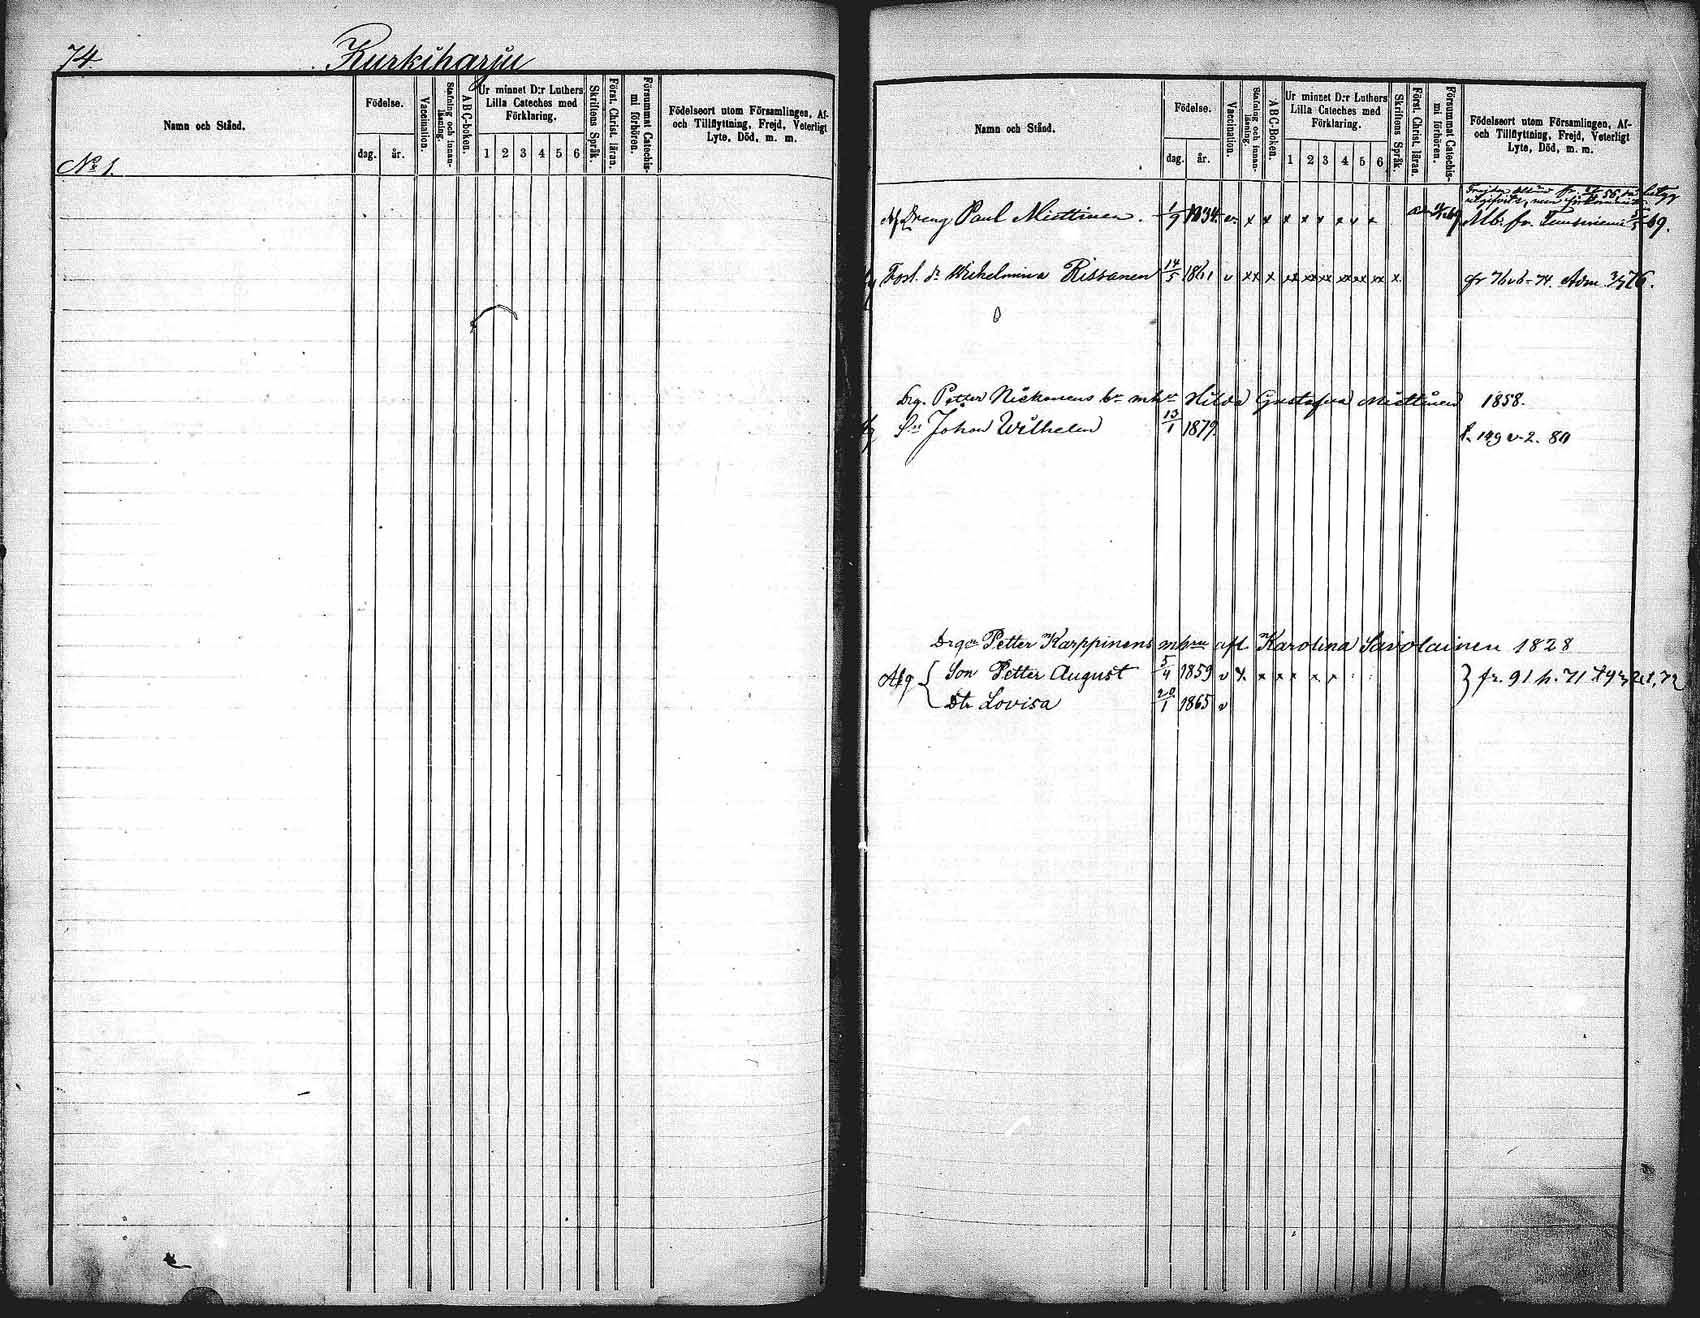 74.
Kurkiharju
Namn och Stånd.
Födelse.
dag. år.
Vaccination.
Stafning och innan-
läsning.
ABC-boken.
Ur minnet D:r Luthers
Lilla Cateches med
Förklaring.
1 2 3 4 5 6
Skriftens Språk.
Först. Christ. läran.
Försummat Catechis-
mi förhören.
Födelseort utom Församlingen, Af-
och Tillflyttning, Frejd, Veterligt
Lyte, Död, m. m.
No 1.
Namn och Stånd.
Födelse.
dag. år.
Vaccination.
Stafning och innan-
läsning.
ABC-Boken.
Ur minnet D:r Luthers
Lilla Cateches med
Förklaring.
1 2 3 4 5 6
Skriftens Språk.
Först. Christ. läran.
Försummat Catechis-
mi förhören.
Födelseort utom Församlingen, Af-
och Tillflyttning, Frejd, Veterligt
Lyte, Död, m. m.
Dreng Paul Miettinen. 1/9 1834 v x x x x x x v x 69.
Fost. dr Wilhelmina Rissanen 14/5 1861 v xx x xx xx xx xx xx xx x. fr 76 v 6-74. Adm. 76.
Drg. Petter Niskanens Hilda Gustafva Miettinen 1858.
Sn Johan Wilhelm 13/1 1879. 149 v-2. 80
Petter Karppinens afl. Karolina Savolainen 1828
Afg { Son Petter August 5/4 1859 v x. x x x x x } fr. 91 h. 71
Dtr Lovisa 20/1 1865 v